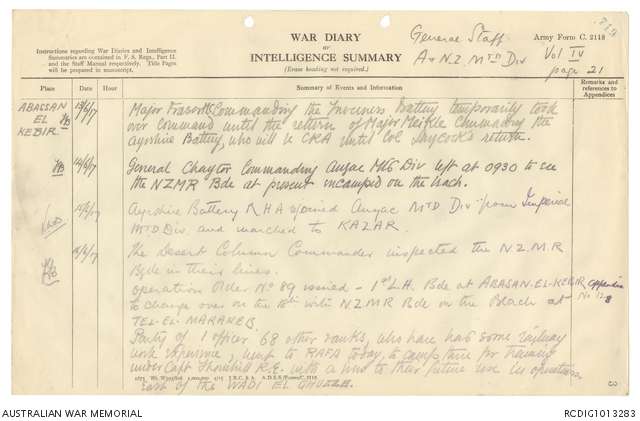 WAR DIARY
OR
INTELLIGENCE SUMMARY
(Erase heading not required.)
Instructions regarding War Diaries and Intelligence
Summaries are contained in F. S. Regs., Part II.
and the Staff Manual respectively. Title Pages
will be prepared in manuscript.
General Staff
A & N.Z. Mtd Div
Army Form C. 2118
Vol IV
page 21
Place
Date
Summary of Events and Information
Remarks and
references to
Appendices
ABASAN
EL
KEBIR
13/6/17
Major Fraser Commanding the Inverness Battery temporarily took
over command until the return of Major Meikle Commanding the
Ayrshire Battery, who will be CRA until Col Laycock's return.
14/6/17
General Chaytor Commanding Anzac Mtd Div left at 0930 to see
the NZMR Bde at present encamped on the beach.
Ayrshire Battery RHA rejoined Anzac MTD Div from Imperial
MTD Div and marched to KAZAR.
15/6/17
The Desert Column Commander inspected the N.Z.M.R
Bde in their lines.
Operation Order No 89 issued - 1st L.H. Bde at ABASAN-EL-KEBIR
to change over on the with NZMR Bde on the Beach at
TEL-EL-MARAKEB.
Appendix
No 128
Party of 1 officer 68 other ranks, who have had some railway
work experience, went to RAFA today, to camp there for training
under Capt Thornhill R.E. with a view to their future use in operations
East of the WADI EL GHUZZE.
3
AUSTRALIAN WAR MEMORIAL
RCDIG1013283